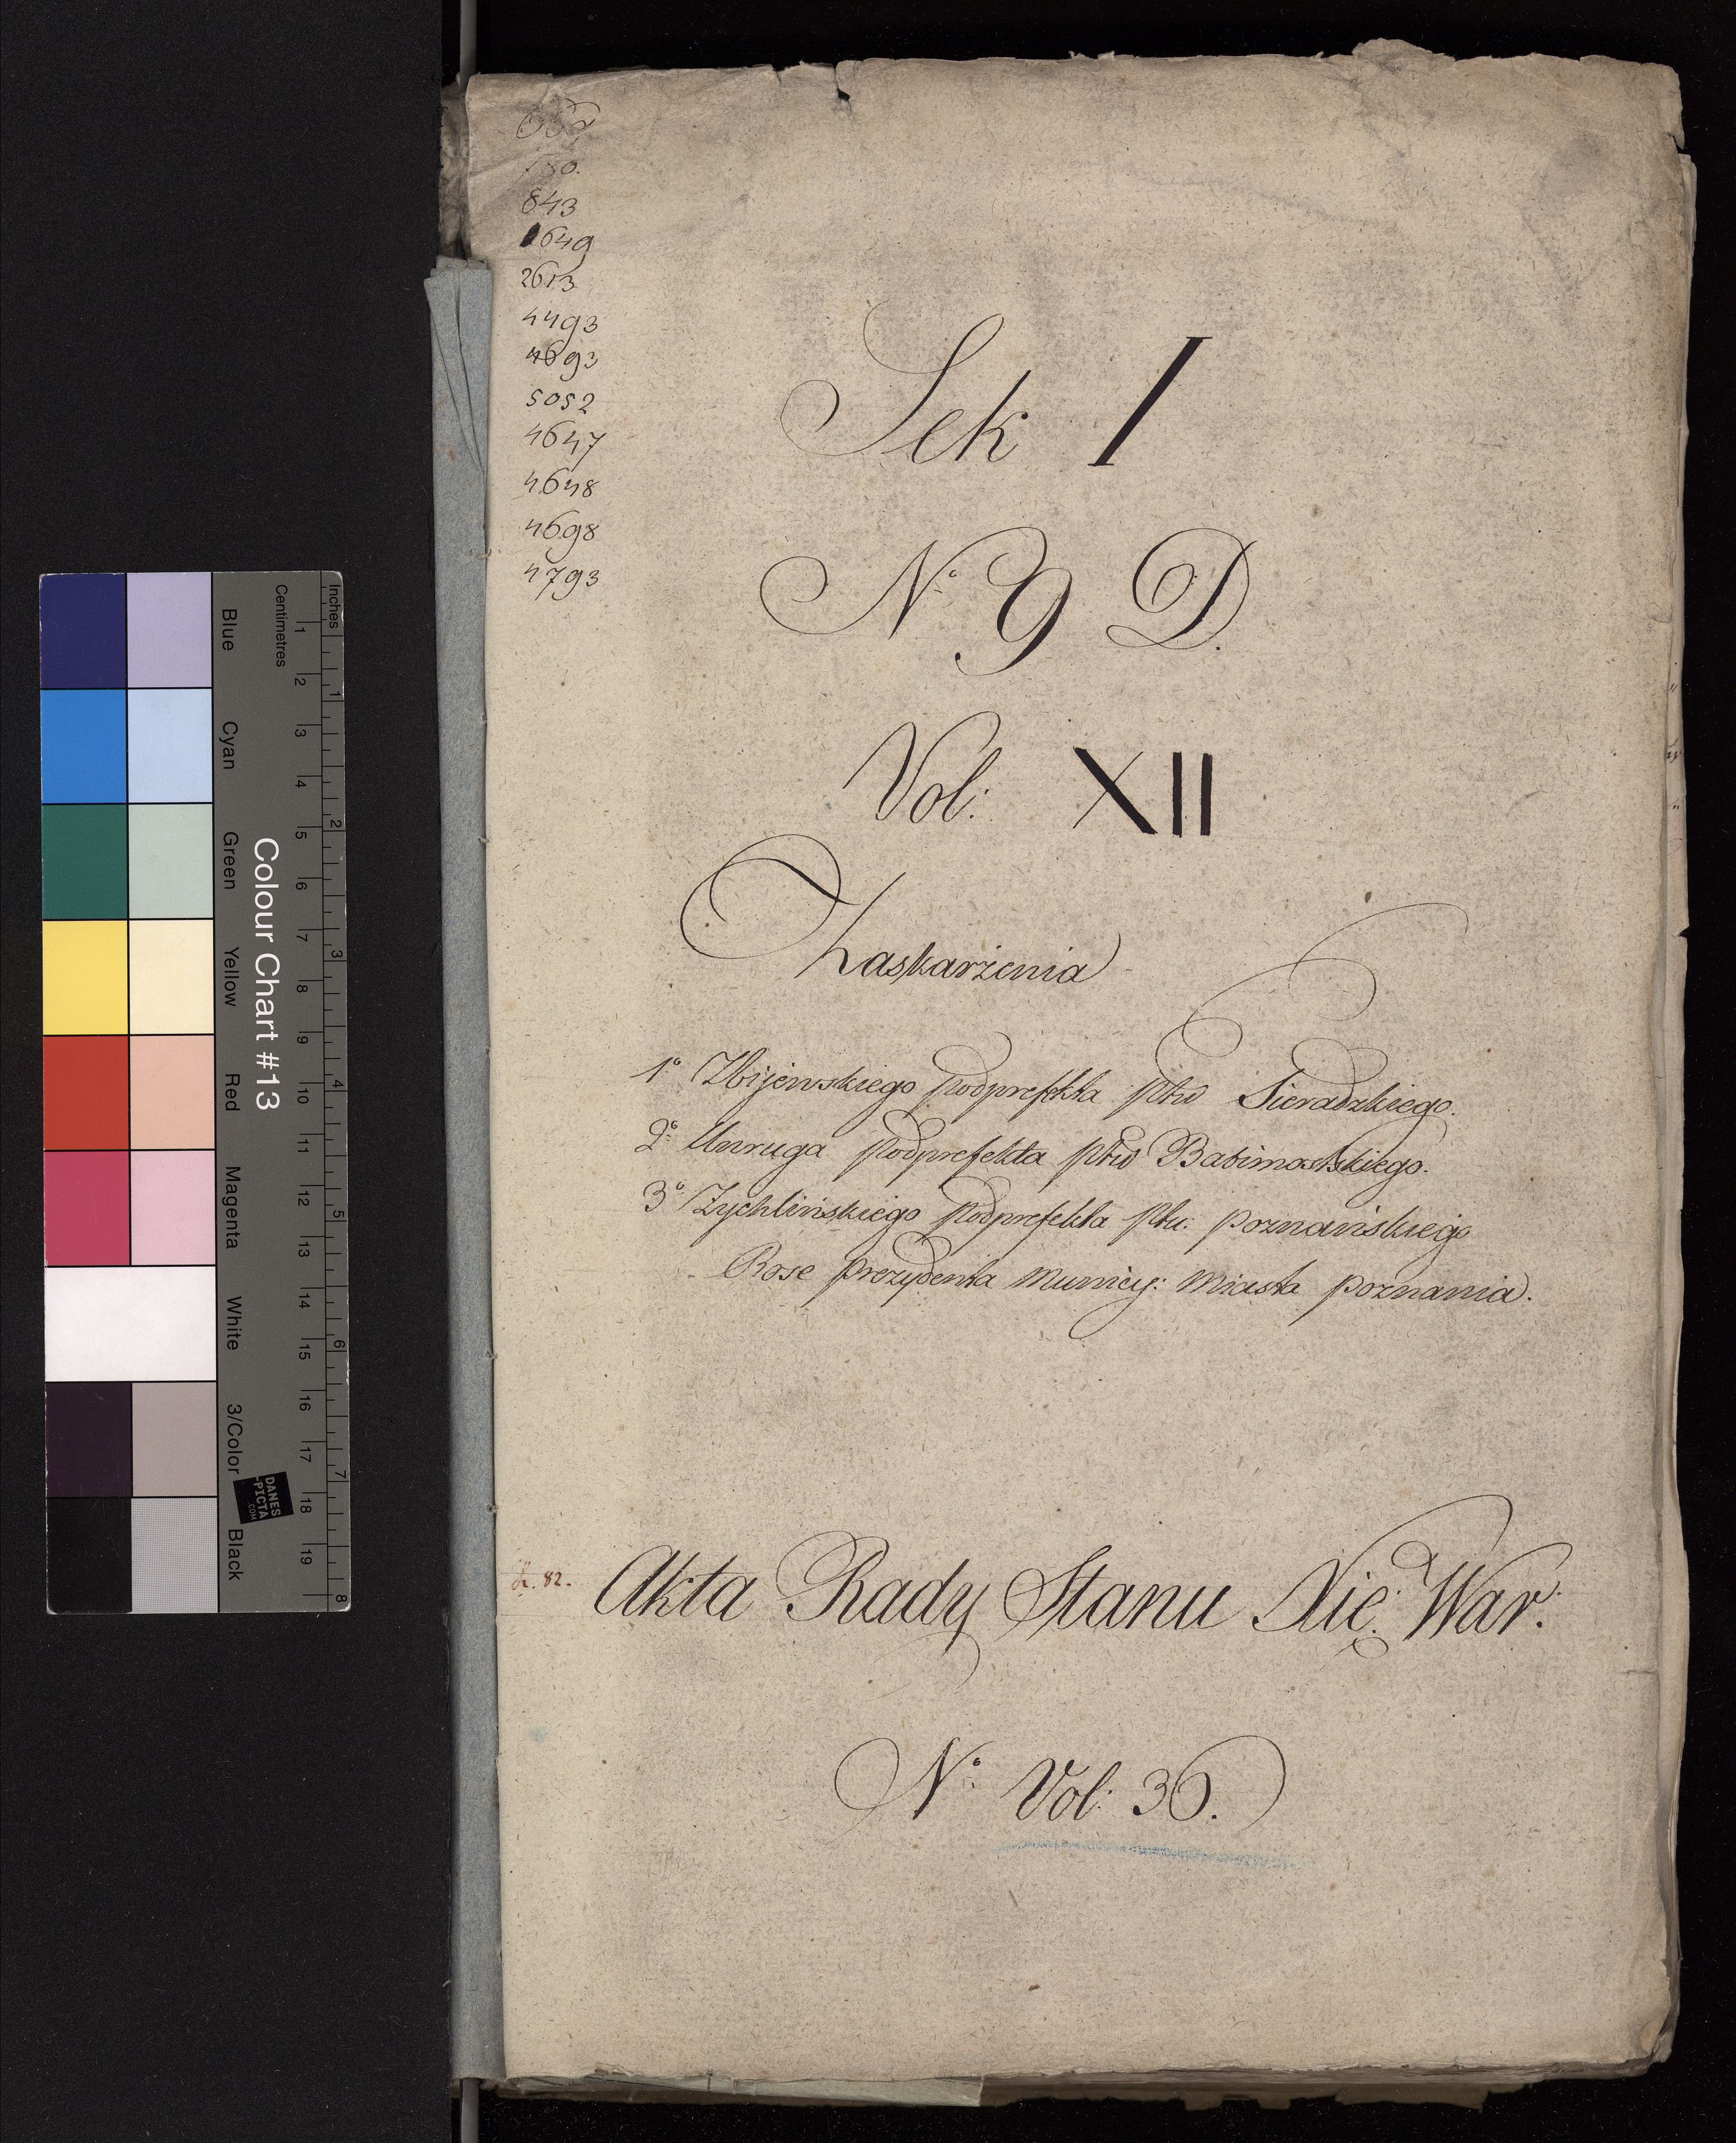 843
1649
2613
4493
4693
5052
4647
4648
4698
4793
Sek I
No 9 D.
Vol: XII
Zaskarżenia
1o Zbijewskiego podprefekta Pttu Sieradzkiego.
2o Unruga podprefekta pttu Babimostskiego.
3o Zychlińskiego podprefekta Pttu: poznańskiego
Rose prezydenta Municy: Miasta poznania.
k. 82.
Akta Rady Stanu Xię: War:
No Vol: 36.
Inches
Centimetres
1 2 3 4 5 6 7 8 9 10 11 12 13 14 15 16 17 18 19
1 2 3 4 5 6 7 8
Colour Chart #13
Blue
Cyan
Green
Yellow
Red
Magenta
White
3/Color
Black
DANES
-PICTA
.COM